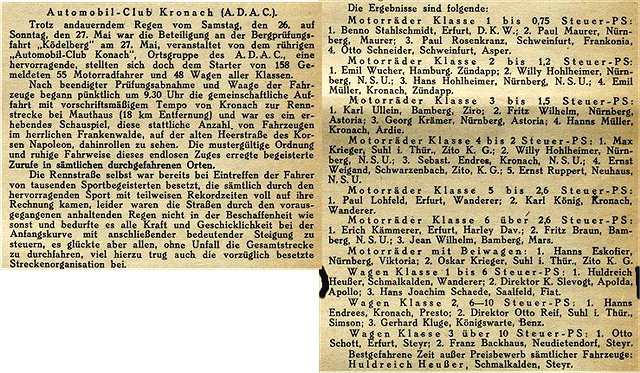 Automobil-Club Kronach (A.D.A.C.).
Trotz andauerndem Regen vom Samstag, den 26. auf
Sonntag, den 27. Mai war die Beteiligung an der Bergprüfungs-
fahrt „Ködelberg" am 27. Mai, veranstaltet von dem rührigen
„Automobil-Club Konach", Ortsgruppe des A.D.A.C., eine
hervorragende, stellten sich doch dem Starter von 158 Ge-
meldeten 55 Motorradfahrer und 48 Wagen aller Klassen.
Nach beendigter Prüfungsabnahme und Waage der Fahr-
zeuge begann pünktlich um 9.30 Uhr die gemeinschaftliche Auf-
fahrt mit vorschriftsmäßigem Tempo von Kronach zur Renn-
strecke bei Mauthaus (18 km Entfernung) und war es ein er-
hebendes Schauspiel, diese stattliche Anzahl von Fahrzeugen
im herrlichen Frankenwalde, auf der alten Heerstraße des Kor-
sen Napoleon, dahinrollen zu sehen. Die mustergültige Ordnung
und ruhige Fahrweise dieses endlosen Zuges erregte begeisterte
Zurufe in sämtlichen durchgefahrenen Orten.
Die Rennstraße selbst war bereits bei Eintreffen der Fahrer
von tausenden Sportbegeisterten besetzt, die sämtlich durch den
hervorragenden Sport mit teilweisen Rekordzeiten voll auf ihre
Rechnung kamen, leider waren die Straßen durch den voraus-
gegangenen anhaltenden Regen nicht in der Beschaffenheit wie
sonst und bedurfte es alle Kraft und Geschicklichkeit bei der
Anfangskurve mit anschließender bedeutender Steigung zu
steuern, es glückte aber allen, ohne Unfall die Gesamtstrecke
zu durchfahren, viel hierzu trug auch die vorzüglich besetzte
Streckenorganisation bei.
Die Ergebnisse sind folgende:
Motorräder Klasse 1 bis 0,75 Steuer-PS:
1. Benno Stahlschmidt, Erfurt, D.K.W.; 2. Paul Maurer, Nürn-
berg, Maurer; 3. Paul Rosenkranz, Schweinfurt, Frankonia,
4. Otto Schneider, Schweinfurt, Asper.
Motorräder Klasse 2 bis 1,2 Steuer-PS:
1. Emil Wucher, Hamburg, Zündapp; 2. Willy Hohlheimer, Nürn-
berg, N.S.U.; 3. Hans Hohlheimer, Nürnberg, N.S.U.; 4. Emil
Müller, Kronach, Zündapp.
Motorräder Klasse 3 bis 1,5 Steuer-PS:
1. Karl Ullein, Bamberg, Ziro; 2. Fritz Wilhelm, Nürnberg,
Astoria; 3. Georg Krämer, Nürnberg, Astoria; 4. Hanns Müller,
Kronach, Ardie.
Motorräder Klasse 4 bis 2 Steuer-PS: 1. Max
Krieger, Suhl i. Thür., Zito K. G.; 2. Willy Hohlheimer, Nürn-
berg, N.S.U.; 3. Sebast. Endres, Kronach, N.S.U.; 4. Ernst
Weigand, Schwarzenbach, Zito, K. G.; 5. Ernst Ruppert, Neuhaus,
N.S.U.
Motorräder Klasse 5 bis 2,6 Steuer-PS:
1. Paul Lohfeld, Erfurt, Wanderer; 2. Karl König, Kronach,
Wanderer.
Motorräder Klasse 6 über 2,6 Steuer-PS:
1. Erich Kämmerer, Erfurt, Harley Dav.; 2. Fritz Braun, Bam-
berg, N.S.U.; 3. Jean Wilhelm, Bamberg, Mars.
Motorräder mit Beiwagen: 1. Hanns Eskofier,
Nürnberg, Viktoria; 2. Oskar Krieger, Suhl i. Thür., Zito K. G.
Wagen Klasse 1 bis 6 Steuer-PS: 1. Huldreich
Heußer, Schmalkalden, Wanderer; 2. Direktor K. Slevogt, Apolda,
Apollo; 3. Hans Joachim Schaede, Saalfeld, Fiat.
Wagen Klasse 2, 6—10 Steuer-PS: 1. Hanns
Endrees, Kronach, Presto; 2. Direktor Otto Reif, Suhl i. Thür.,
Simson; 3. Gerhard Kluge, Königswarte, Benz.
Wagen Klasse 3 über 10 Steuer-PS: 1. Otto
Schott, Erfurt, Steyr; 2. Franz Backhaus, Neudietendorf, Steyr.
Bestgefahrene Zeit außer Preisbewerb sämtlicher Fahrzeuge:
Huldreich Heußer, Schmalkalden, Steyr.